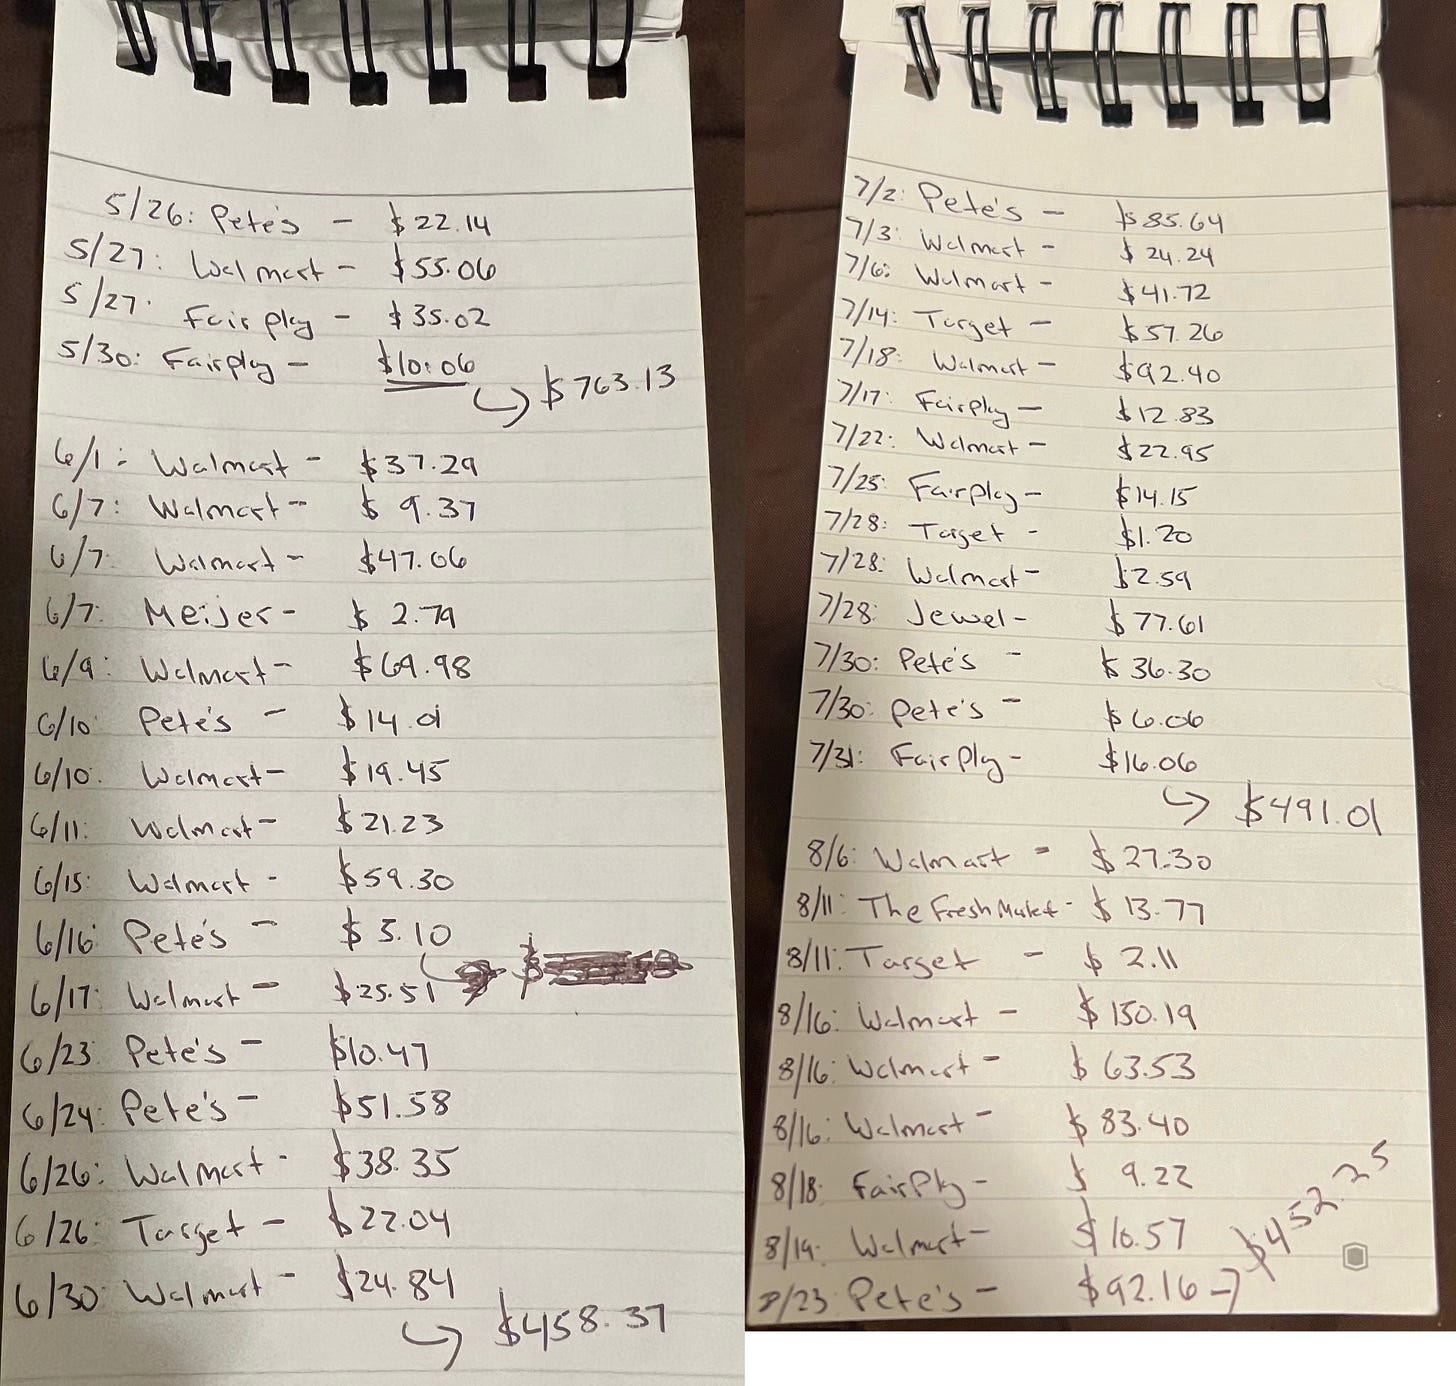 5/26: Pete's - $22.14
5/27: Walmart - $55.06
5/27: Fairplay - $35.02
5/30: Fairplay - $10.06
$763.13
6/1: Walmart - $37.29
6/7: Walmart - $9.37
6/7: Walmart - $47.06
6/7: Meijer - $2.79
6/9: Walmart - $69.98
6/10: Pete's - $14.01
6/10: Walmart - $19.45
6/11: Walmart - $21.23
6/15: Walmart - $59.30
6/16: Pete's - $5.10
6/17: Walmart - $25.51
6/23: Pete's - $10.47
6/24: Pete's - $51.58
6/26: Walmart - $38.35
6/26: Target - $22.04
6/30: Walmart - $24.84
$458.37
7/2: Pete's - $85.64
7/3: Walmart - $24.24
7/6: Walmart - $41.72
7/14: Target - $57.26
7/18: Walmart - $92.40
7/17: Fairplay - $12.83
7/22: Walmart - $22.95
7/25: Fairplay - $14.15
7/28: Target - $1.20
7/28: Walmart - $2.59
7/28: Jewel - $77.61
7/30: Pete's - $36.30
7/30: Pete's - $6.06
7/31: FairPlay - $16.06
$491.01
8/6: Walmart - $27.30
8/11: The Fresh Market - $13.77
8/11: Target - $2.11
8/16: Walmart - $150.19
8/16: Walmart - $63.53
8/16: Walmart - $83.40
8/18: FairPlay - $9.22
8/19: Walmart - $10.57
8/23 Pete's - $92.16 → $452.25